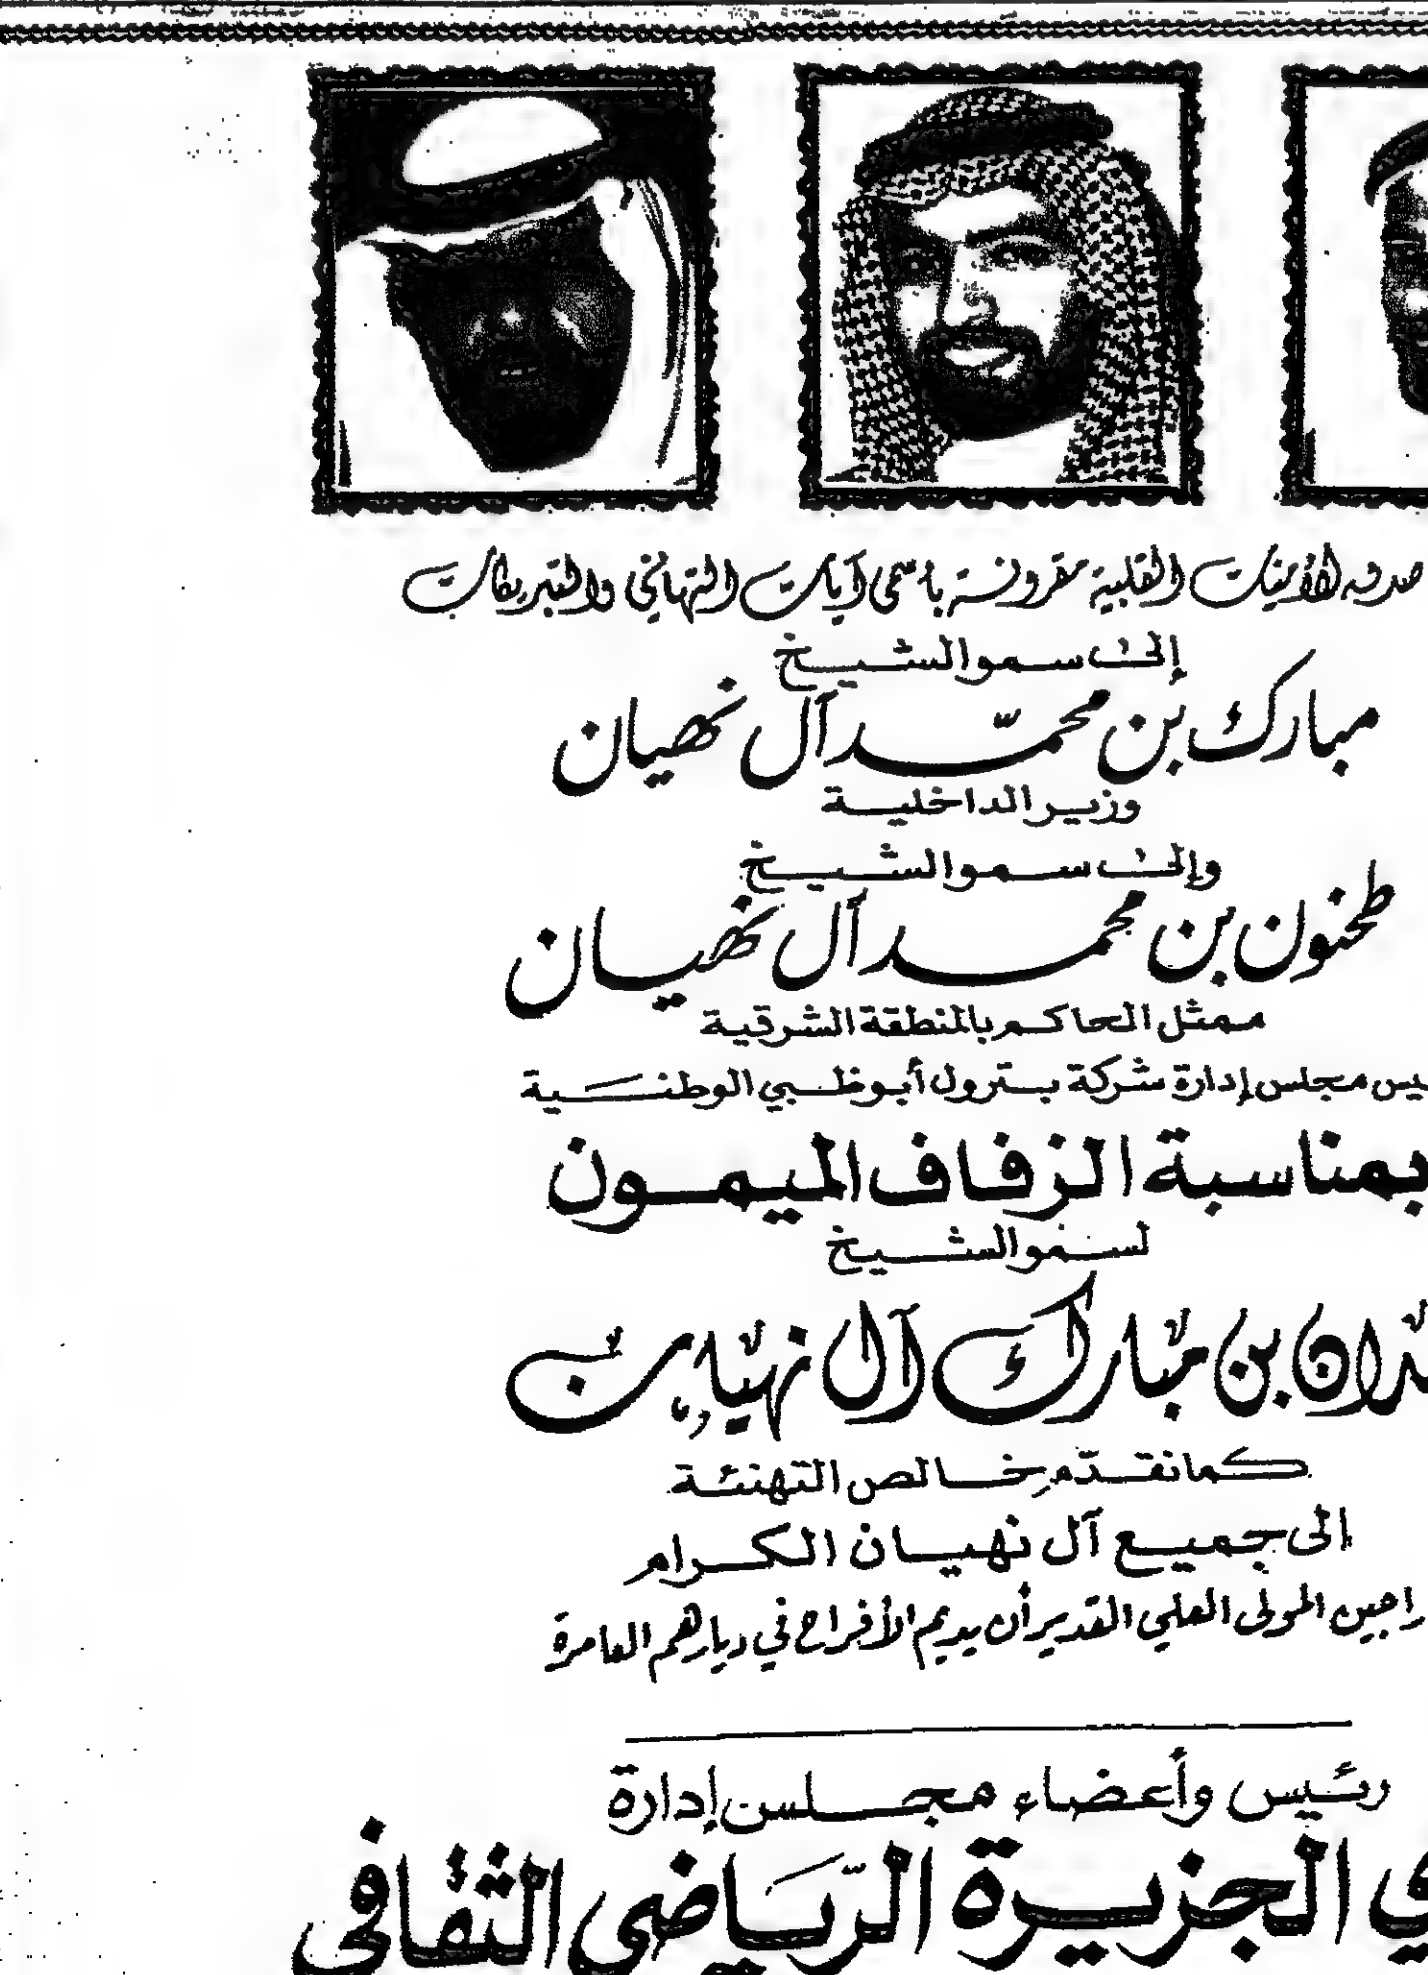 صدق الأمنيات القلبية مقرونة بأسمى آيات التهاني والتبريكات
إلى سمو الشيخ
مبارك بن محمّد آل نهيان
وزير الداخلية
وإلى سمو الشيخ
طحنون بن محمد آل نهيان
ممثل الحاكم بالمنطقة الشرقية
يس مجلس إدارة شركة بترول أبوظبي الوطنية
بمناسبة الزفاف الميمون
لسمو الشيخ
دان بن مبارك آل نهيان
كما نقدّم خالص التهنئة
إلى جميع آل نهيان الكرام
راجين المولى العلي القدير أن يديم الأفراح في ديارهم العامرة
رئيس وأعضاء مجلس إدارة
ي الجزيرة الرياضي الثقافي